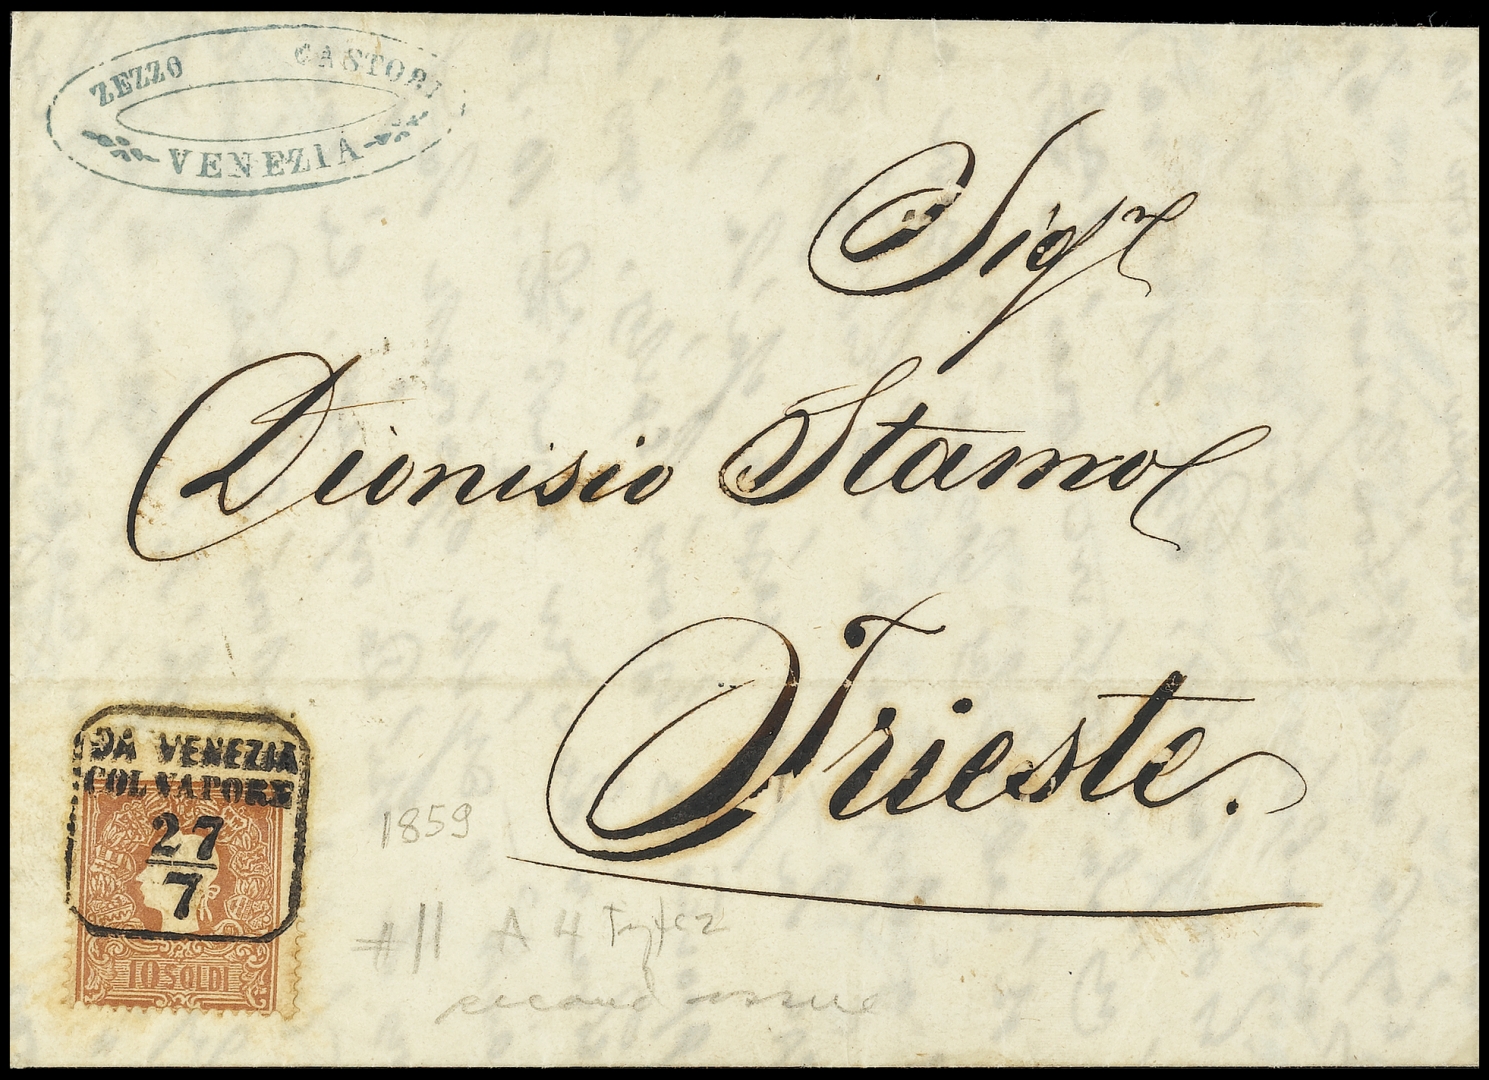 ZEZZO CASTORI
VENEZIA
Sigr
Dionisio Stamo
Trieste.
DA VENEZIA
COL VAPORE
27
7
10 SOLDI
1859
#11 A 4 Type 2
second issue